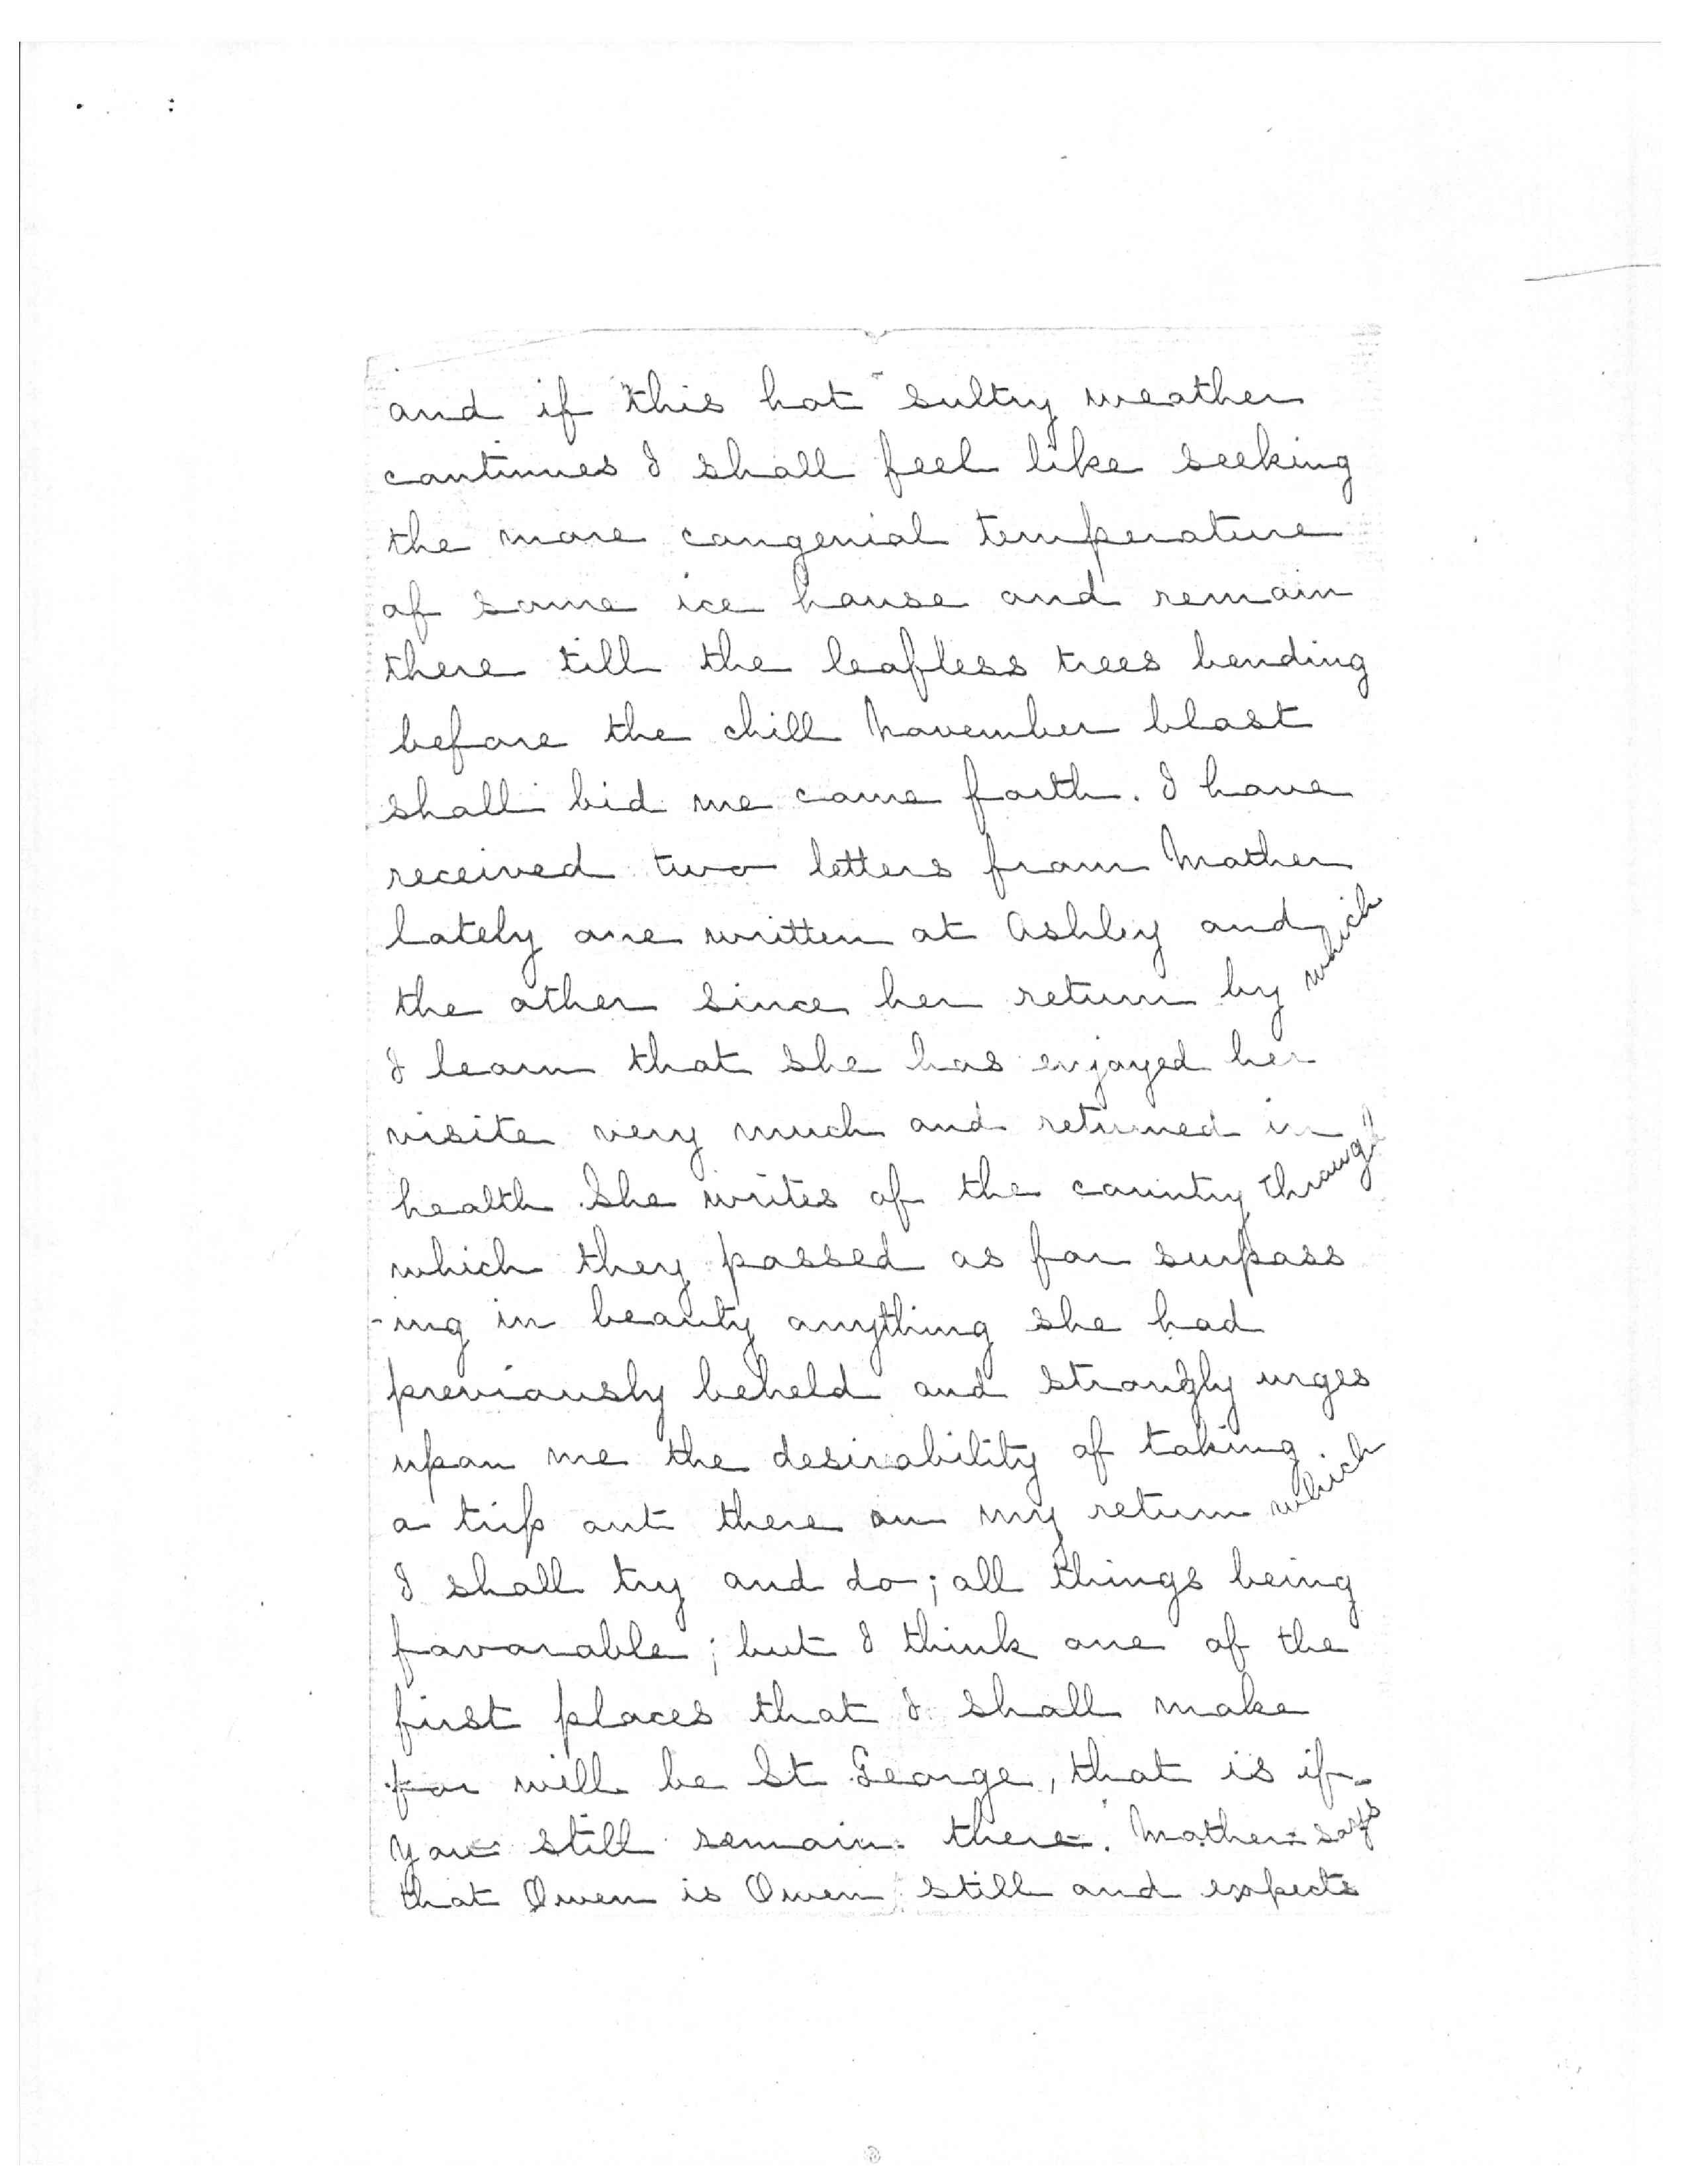 and if this hot sultry weather
continues I shall feel like seeking
the more congenial temperature
of some ice house and remain
there till the leafless trees bending
before the chill November blast
shall bid me come forth. I have
received two letters from Mother
lately one written at Ashley and
the other since her return by which
I learn that she has enjoyed her
visite very much and returned in
health. She writes of the country through
which they passed as far surpass
-ing in beauty anything she had
previously beheld and strongly urges
upon me the desirability of taking
a trip out there on my return which
I shall try and do; all things being
favorable; but I think one of the
first places that I shall make
for will be St George, that is if
you still remain there. Mother says
that Owen is Owen still and expects